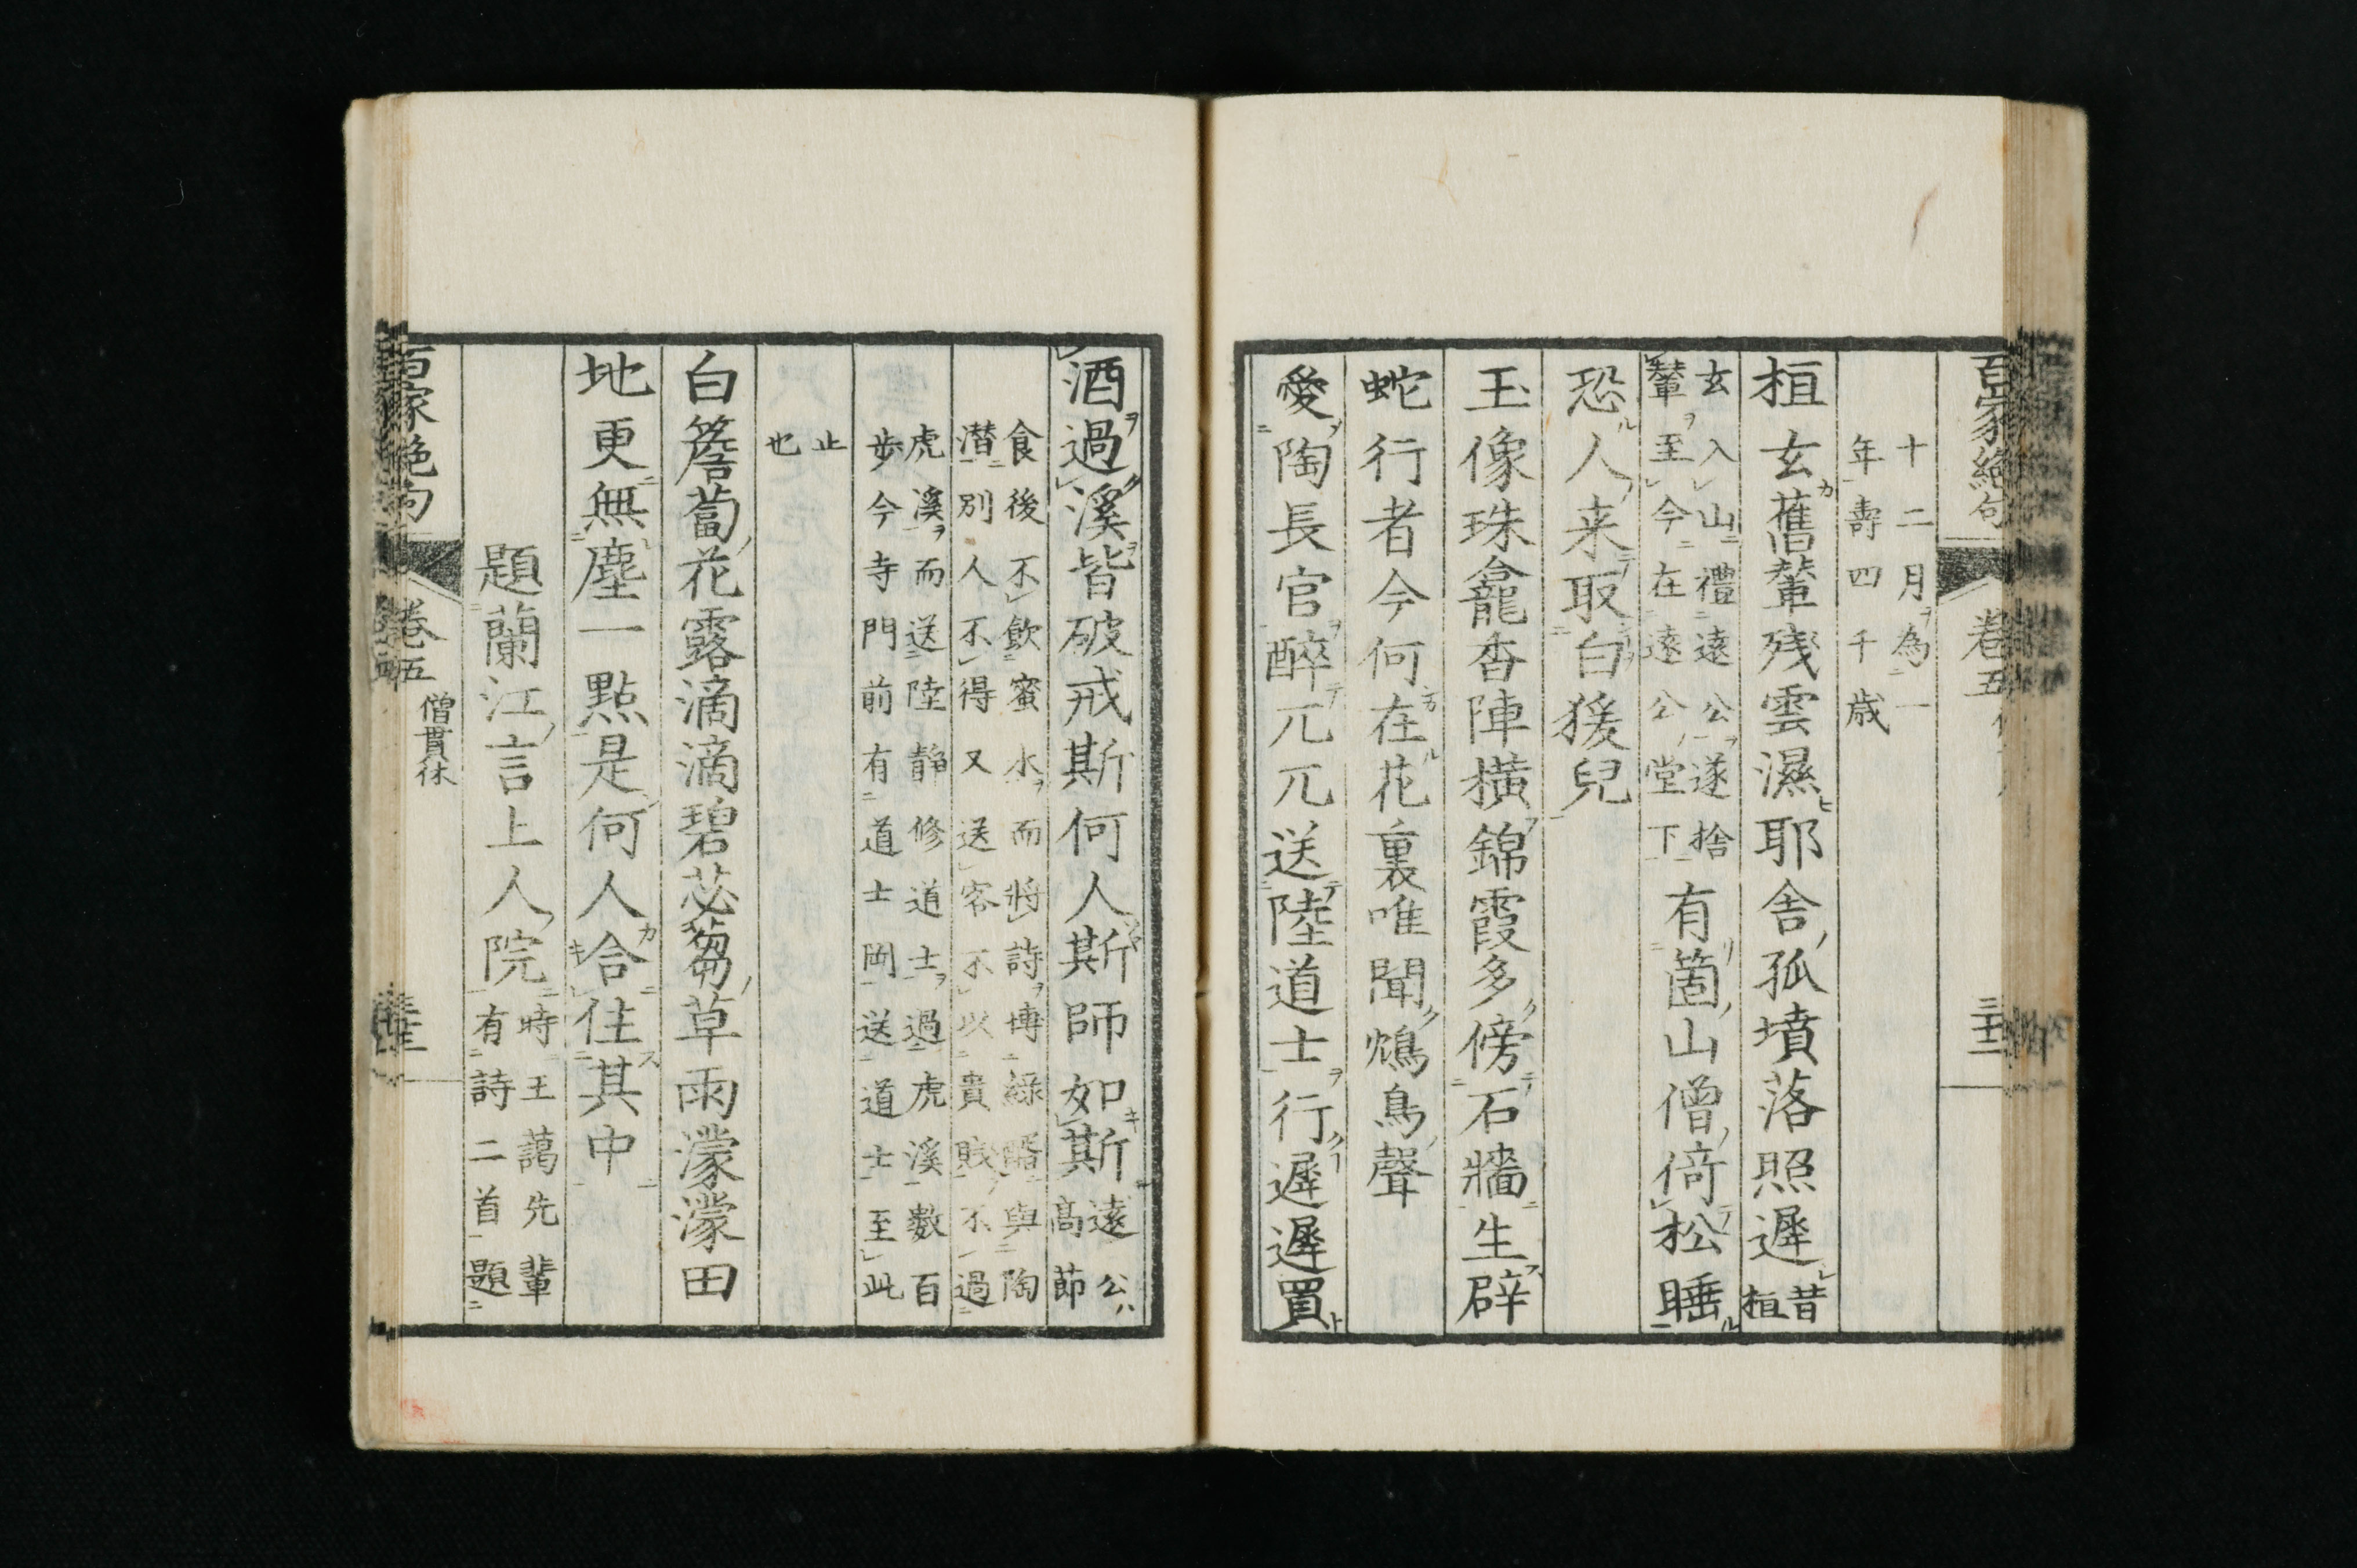 百家絶句
卷五
三十二
十二月為一
年壽四千歳
桓玄舊輦残雲濕耶舎孤墳落照遲昔
桓
玄入山禮遠公遂捨
輦至今在遠公堂下
有箇山僧倚松睡
恐人来取白猨兒
玉像珠龕香陣横錦霞多傍石牆生辟
蛇行者今何在花裏唯聞鴆鳥聲
愛陶長官醉兀兀送陸道士行遲遲買
酒過溪皆破戒斯何人斯師如斯遠公
高節
食後不飲蜜水而將詩博綠醑與陶
潜別人不得又送客不以貴賤不過
虎溪而送陸静修道士過虎溪數百
歩今寺門前有道士岡送道士至此
止
也
白簷蔔花露滴滴碧苾蒭草雨濛濛田
地更無塵一點是何人合住其中
題蘭江言上人院時王蔼先輩
有詩二首題
百家絶句
卷五
僧貫休